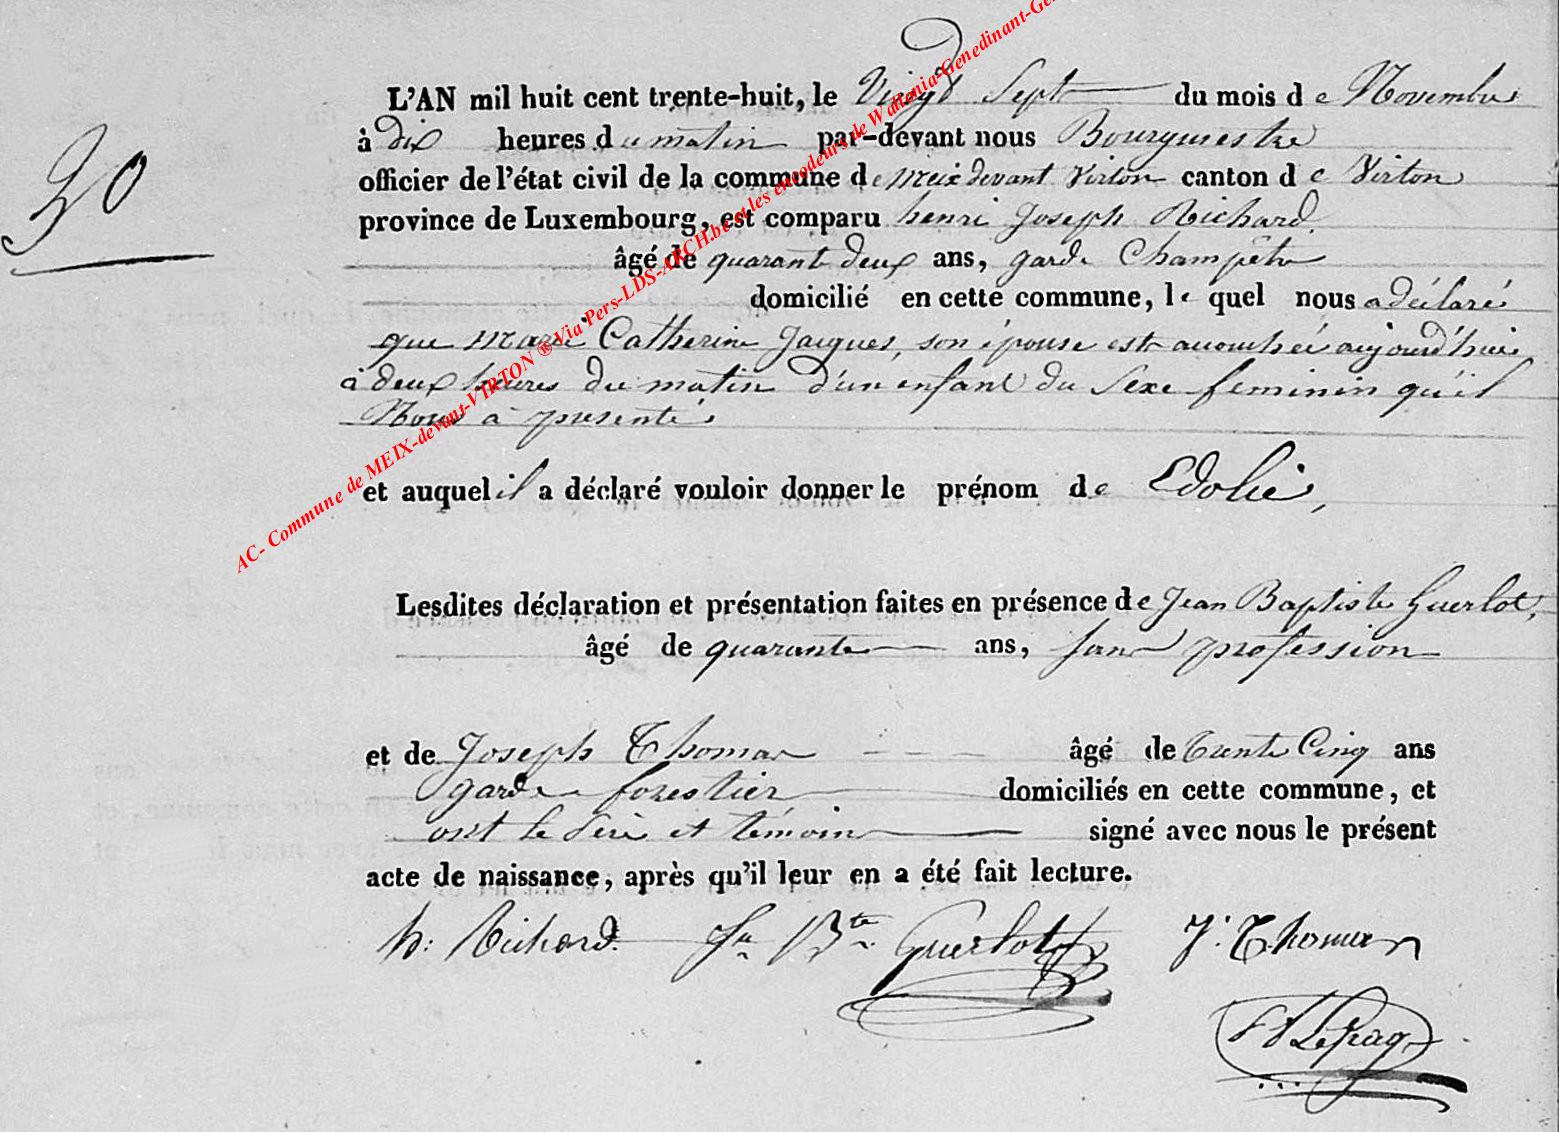 30
L'AN mil huit cent trente-huit, le Vingt Sept du mois de Novembre
à dix heures du matin par-devant nous Bourgmestre
officier de l'état civil de la commune de Meix devant Virton canton de Virton
province de Luxembourg, est comparu henri Joseph Richard.
âgé de quarante deux ans, garde Champêtre
domicilié en cette commune, le quel nous a déclaré
que Marie Catherine Jacques, son épouse est accouchée aujourd'hui
à deux heures du matin d'un enfant du Sexe feminin qu'il
Nous à présenté
et auquel il a déclaré vouloir donner le prénom de Edolie,
Lesdites déclaration et présentation faites en présence de Jean Baptiste Guerlot,
âgé de quarante ans, sans profession
et de Joseph Thomas âgé de trente Cinq ans
garde forestier domiciliés en cette commune, et
ont le père et témoins signé avec nous le présent
acte de naissance, après qu'il leur en a été fait lecture.
h: Richard. Jn Bte Guerlot J. Thomas
Lepage
AC- Commune de MEIX-devant-VIRTON ® Via Pers-LDS-ARCH.be et les encodeurs de Wallonia-Genedinant-Ge